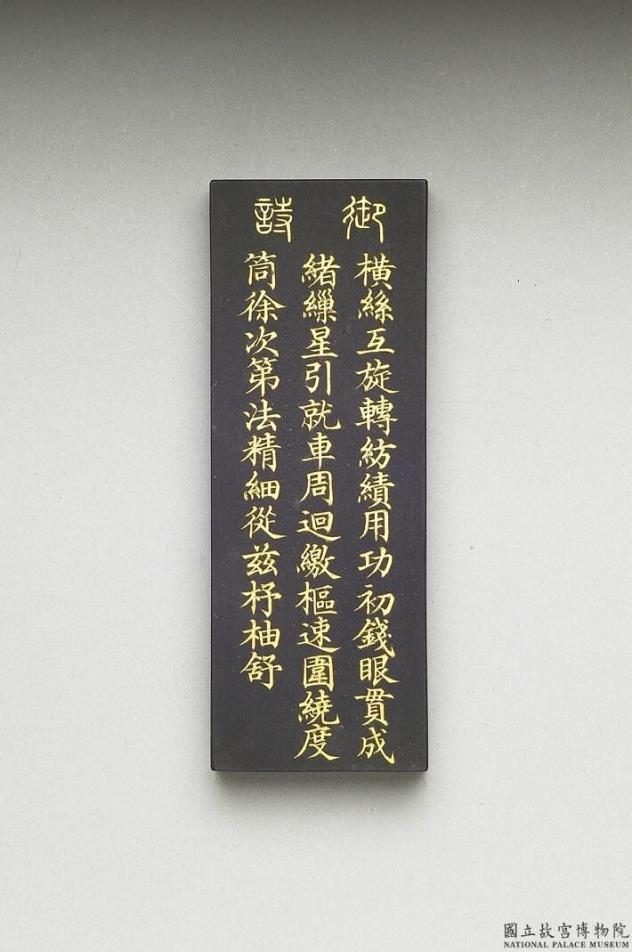 御詩
橫絲互旋轉紡績用功初錢眼貫成
緒繅星引就車周迴繳樞速圍繞度
筒徐次第法精細從茲杼柚舒
國立故宮博物院
NATIONAL PALACE MUSEUM